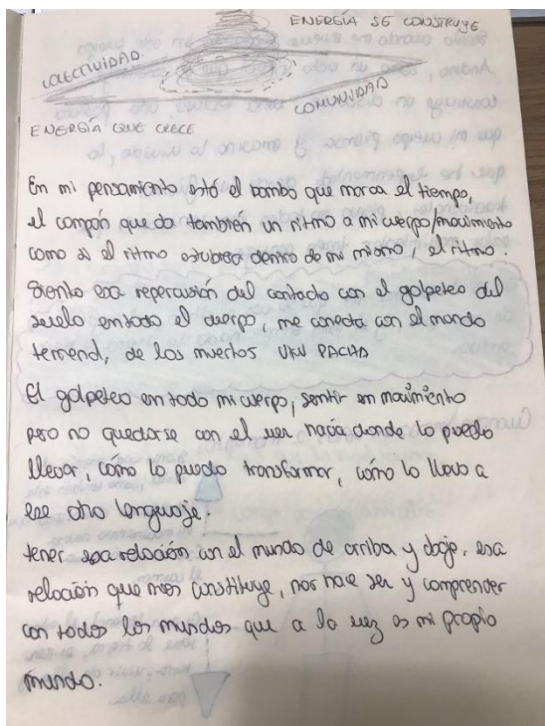 ENERGÍA SE CONSTRUYE
COLECTIVIDAD.
COMUNIDAD
ENERGÍA QUE CRECE
En mi pensamiento está el bombo que marca el tiempo,
el compás que da también un ritmo a mi cuerpo/movimiento
como si el ritmo estubiera dentro de mi mismo, el ritmo.
Siento esa repercusión del contacto con el golpeteo del
suelo en todo el cuerpo, me conecta con el mundo
terrenal, de los muertos UKU PACHA
El golpeteo en todo mi cuerpo, sentir en movimiento
pero no quedarse con el ver hacia donde lo puedo
llevar, como lo puedo transformar, cómo lo llevo a
ese otro lenguaje.
tener esa relación con el mundo de arriba y abajo, esa
relación que nos constituye, nos hace ser y comprender
con todos los mundos que a la vez es mi propio
mundo.